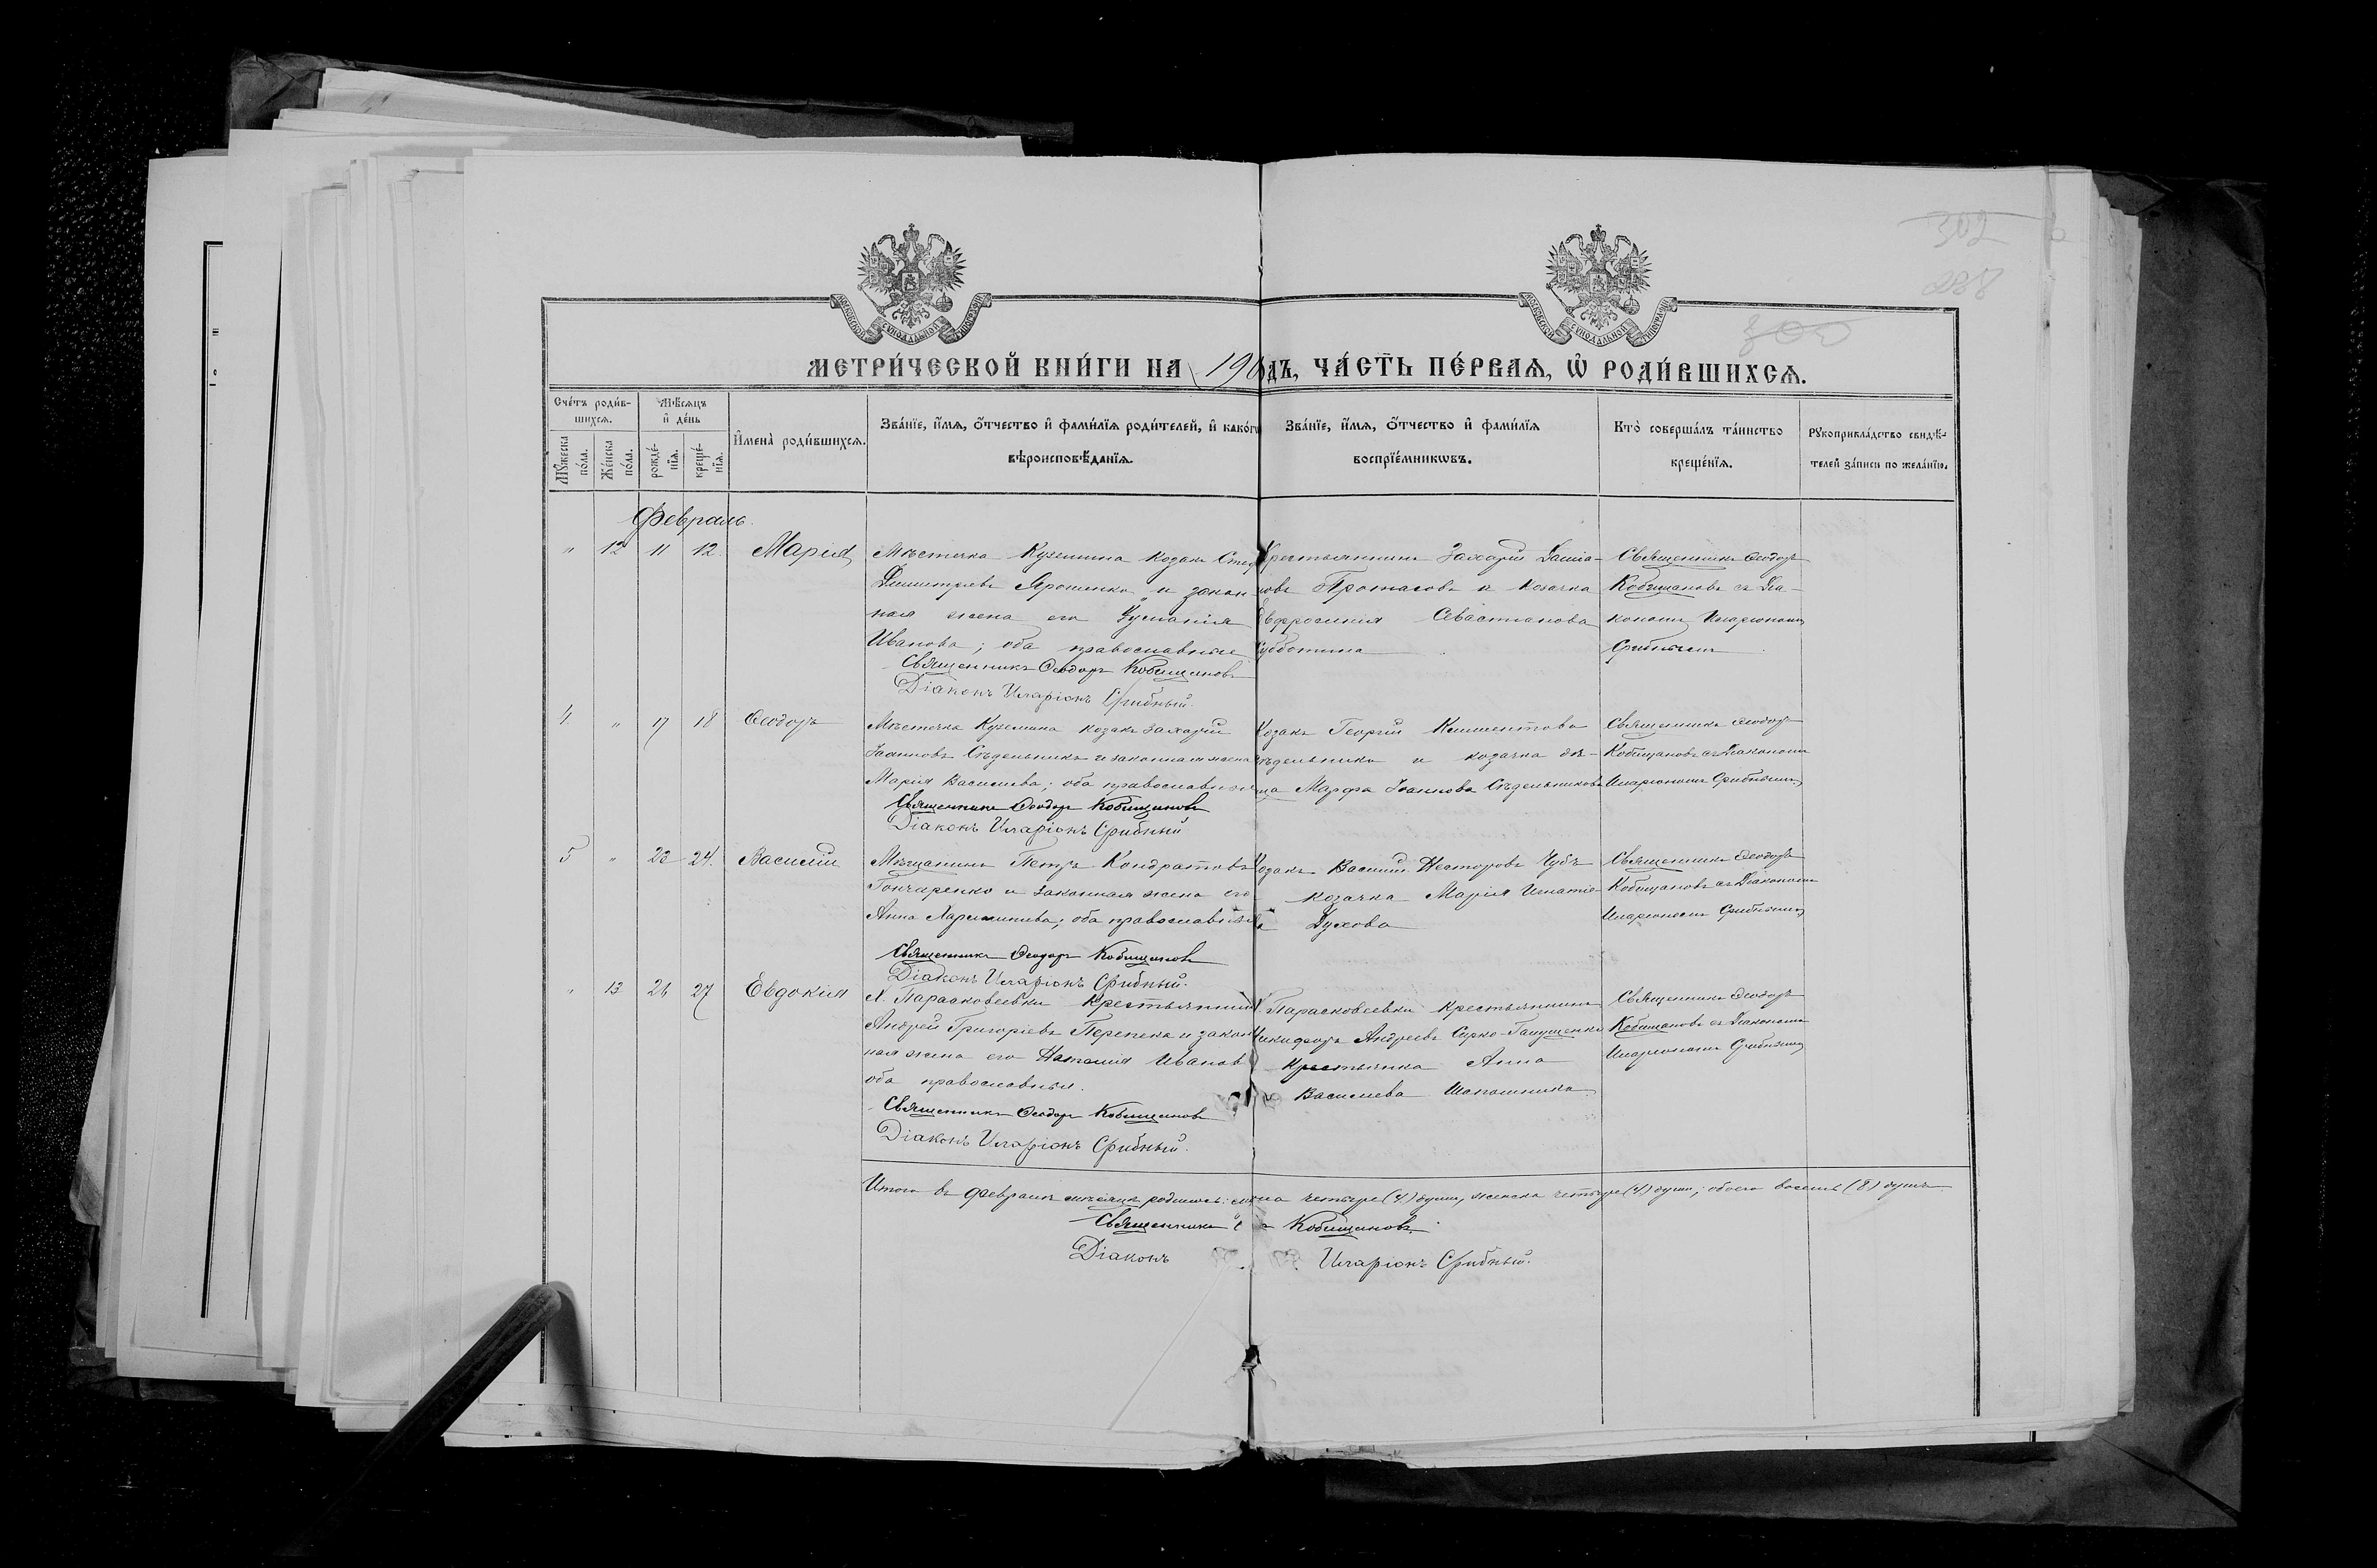 302
288
300
МОСКОВСКОЙ СѴНОДАЛЬНОЙ ТИПОГРАФІИ
МОСКОВСКОЙ СѴНОДАЛЬНОЙ ТИПОГРАФІИ
МЕТРИ́ЧЕСКОЙ КНИ́ГИ НА 190 ДЪ, ЧА́СТЬ ПЕ́РВАѦ, Ѡ РОДИ́ВШИХСѦ.
Сче́тъ роди́в-
шихсѧ.
Мѣ́сѧцъ
и де́нь
Мꙋ́жеска
по́ла.
Же́нска
по́ла.
рожде́-
нїѧ.
креще́-
нїѧ.
И҆мена̀ роди́вшихсѧ.
Зва́нїе, и҆́мѧ, ѻ҆́тчество и҆ фами́лїѧ роди́телей, и҆ како́гѡ
вѣроисповѣ́данїѧ.
Зва́нїе, и҆́мѧ, ѻ҆́тчество и҆ фами́лїѧ
воспрїе́мникѡвъ.
Кто̀ соверша́лъ та́инство
креще́нїѧ.
Рꙋкоприкла́дство свидѣ́-
телей за́писи по жела́нїю.
Февраль.
" 12 11 12. Марія
Мѣстечка Куземина козакъ
Димитріевъ Ярошенко и закон
ная жена его
Иванова; оба православные
Священникъ Ѳеодоръ Кобищановъ
Діаконъ Иларіонъ Срибный.
Крестьянинъ Захарій Даміа-
новъ Протасовъ и козачка
Евфросинія Севастіанова
Субботина
Священникъ Ѳеодоръ
Кобищановъ съ Діа-
кономъ Иларіономъ
Срибнымъ
4 " 17 18 Ѳеодоръ
Мѣстечка Куземина козакъ Захарій
Іоанновъ Сѣдельникъ и законная жена
Марія Васильева; оба православные
Священникъ Ѳеодоръ Кобищановъ
Діаконъ Иларіонъ Срибный
Козакъ Георгій Климентовъ
Сѣдельникъ и козачка дѣ-
ица Марфа Іоаннова Сѣдельникова
Священникъ Ѳеодоръ
Кобищановъ съ Діакономъ
Иларіономъ Срибнымъ
5 " 23 24. Василій
Мѣщанинъ Петръ Кондратовъ
Гончаренко и законная жена его
Анна Харлампіева; оба православные
Священникъ Ѳеодоръ Кобищановъ
Діаконъ Иларіонъ Срибный.
Козакъ Василій Несторовъ Чубъ
козачка Марія Игнатіе-
Духова
Священникъ Ѳеодоръ
Кобищановъ съ Діакономъ
Иларіономъ Срибнымъ
" 13 26 27 Евдокія
Х. Парасковеевки крестьянинъ
Андрей Григоріевъ Перепека и закон
ная жена его Наталія Иванов
оба православныя.
Священникъ Ѳеодоръ Кобищановъ
Діаконъ Иларіонъ Срибный.
Х. Парасковеевки крестьянинъ
Никифоръ Андреевъ Сирко-
крестьянка Анна
Васильева
Священникъ Ѳеодоръ
Кобищановъ съ Діакономъ
Иларіономъ Срибнымъ
Итого въ февралѣ мѣсяцѣ родилось: четыре (4) души, женска четыре (4) души; обоего восемь (8) душъ
Священникъ Кобищановъ.
Діаконъ Иларіонъ Срибный.